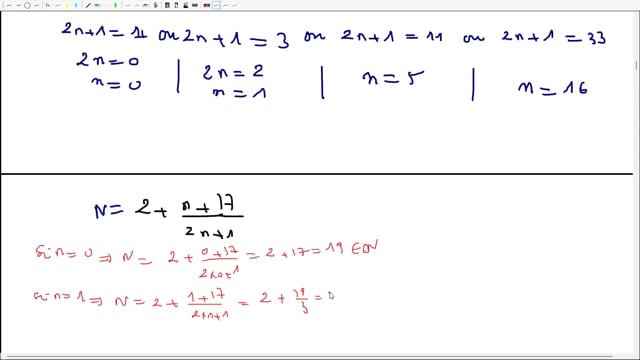 2n+1=1 ou 2n+1=3 ou 2n+1=11 ou 2n+1=33
2n=0 | 2n=2 | n=5 | n=16
n=0 | n=1
N= 2+ (n+17)/(2n+1)
si n=0 ⇒ N= 2+ (0+17)/(2×0+1) = 2+17=19 ∈ IN
si n=1 ⇒ N= 2+ (1+17)/(2×1+1) = 2+ 18/3 =